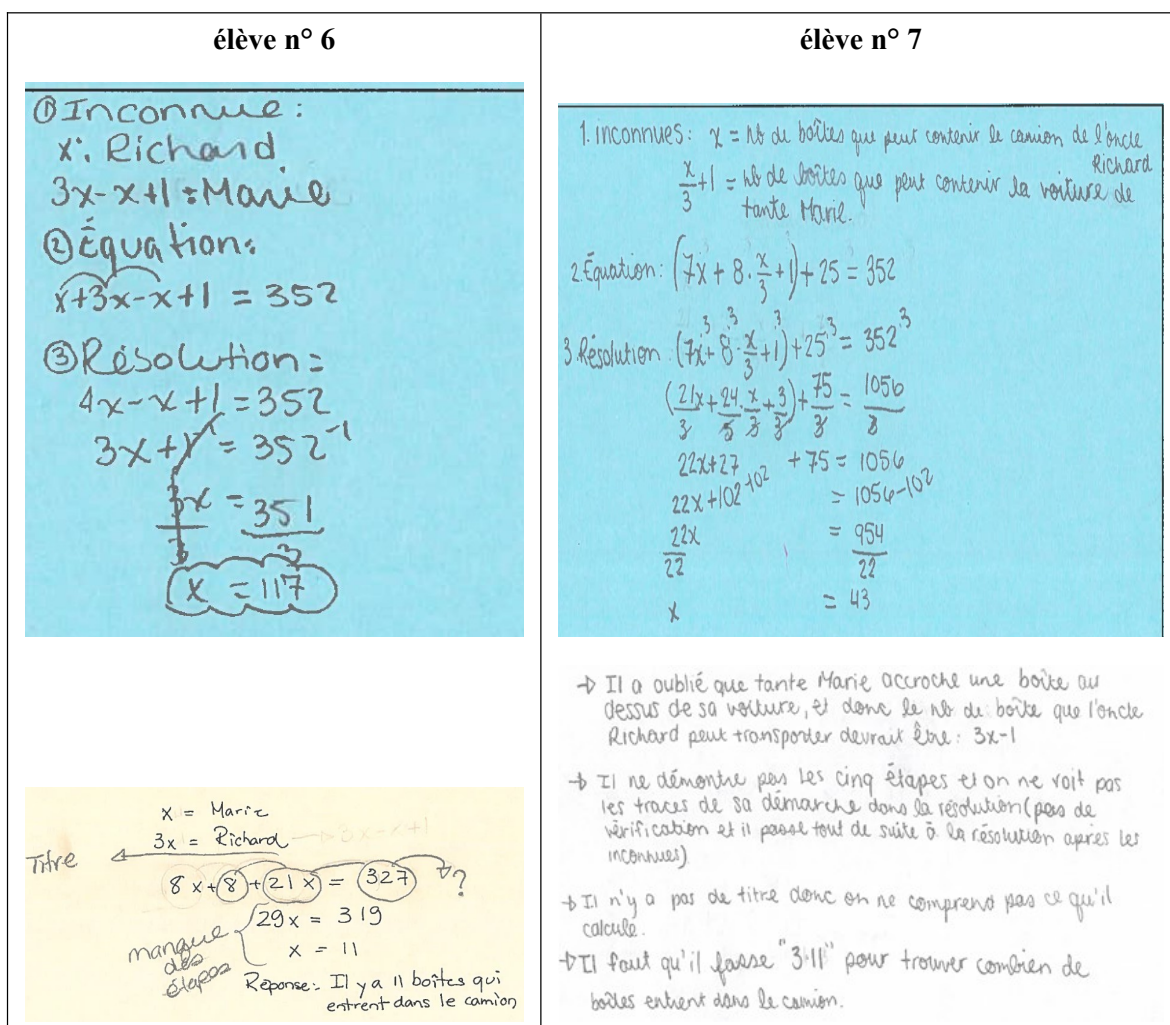 élève n° 6
① Inconnue :
x : Richard
3x-x+1 : Marie
② Équation :
x+3x-x+1 = 352
③ Résolution =
4x-x+1 = 352
3x+1⁻¹ = 352⁻¹
3x = 351
3 3
x = 117
x = Marie
3x = Richard → 3x-x+1
Titre
8x+8+21x = 327 ?
29x = 319
manque des étapes
x = 11
Réponse : Il y a 11 boîtes qui
entrent dans le camion
élève n° 7
1. inconnues : x = nb de boîtes que peut contenir le camion de l'oncle
Richard
x/3+1 = nb de boîtes que peut contenir la voiture de
tante Marie.
2. Équation : (7x + 8 · x/3 + 1) + 25 = 352
3. Résolution : (7x·3 + 8·3 · x/3 + 1·3) + 25·3 = 352·3
(21x/3 + 24/3 · x/3 + 3/3) + 75/3 = 1056/3
22x+27 + 75 = 1056
22x+102-102 = 1056-102
22x/22 = 954/22
x = 43
→ Il a oublié que tante Marie accroche une boîte au
dessus de sa voiture, et donc le nb de boîte que l'oncle
Richard peut transporter devrait être : 3x-1
→ Il ne démontre pas les cinq étapes et on ne voit pas
les traces de sa démarche dans la résolution (pas de
vérification et il passe tout de suite à la résolution après les
inconnues)
→ Il n'y a pas de titre donc on ne comprend pas ce qu'il
calcule.
→ Il faut qu'il fasse "3·11" pour trouver combien de
boîtes entrent dans le camion.